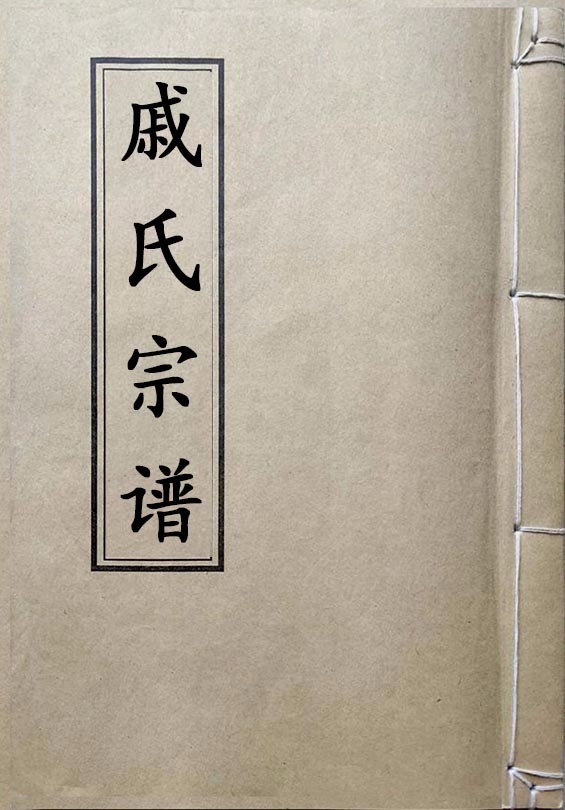 戚氏宗谱